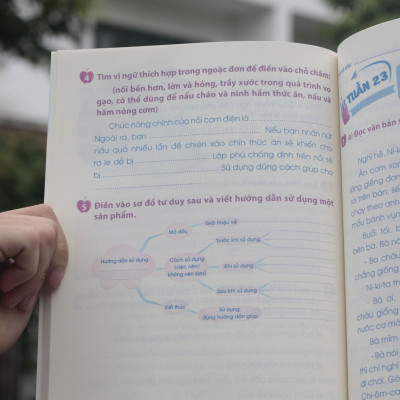 4 Tìm vị ngữ thích hợp trong ngoặc đơn để điền vào chỗ chấm:
(nồi bền hơn, lờn và hỏng, trầy xước trong quá trình vo
gạo, có thể dùng để nấu cháo và ninh hầm thức ăn, nấu và
hâm nóng cơm)
Chức năng chính của nồi cơm điện là
Ngoài ra, bạn ... Nếu bạn nhấn nút
nấu quá nhiều lần để chiên xào chín thức ăn sẽ khiến cho
rơ le dễ bị ... Lớp phủ chống dính trên nồi sẽ
bị ... Sử dụng đúng cách giúp cho
5 Điền vào sơ đồ tư duy sau và viết hướng dẫn sử dụng một
sản phẩm.
Giới thiệu về
Mở đầu
Trước khi sử dụng
Hướng dẫn sử dụng
Cách sử dụng
(việc nên/
không nên làm)
Khi sử dụng
Sau khi sử dụng
Kết thúc
Sử dụng
đúng hướng dẫn giúp
TUẦN 23
Đọc văn bản s
Nghỉ hè, Ni-k
Ăn cơm xon
láng giềng đan
ra trên bàn, liế
chạy theo anh
mẩu bánh vụn
Buổi tối, b
bên bà. Bà nó
- Ba cháu
chẳng giống
Ni-ki-ta th
- Bà ơi,
cháu giống
nước cơ mà
Bà mỉm
- Bà nói
thì chỉ nghĩ
đi chơi. Gô
Chi-ôm-ca